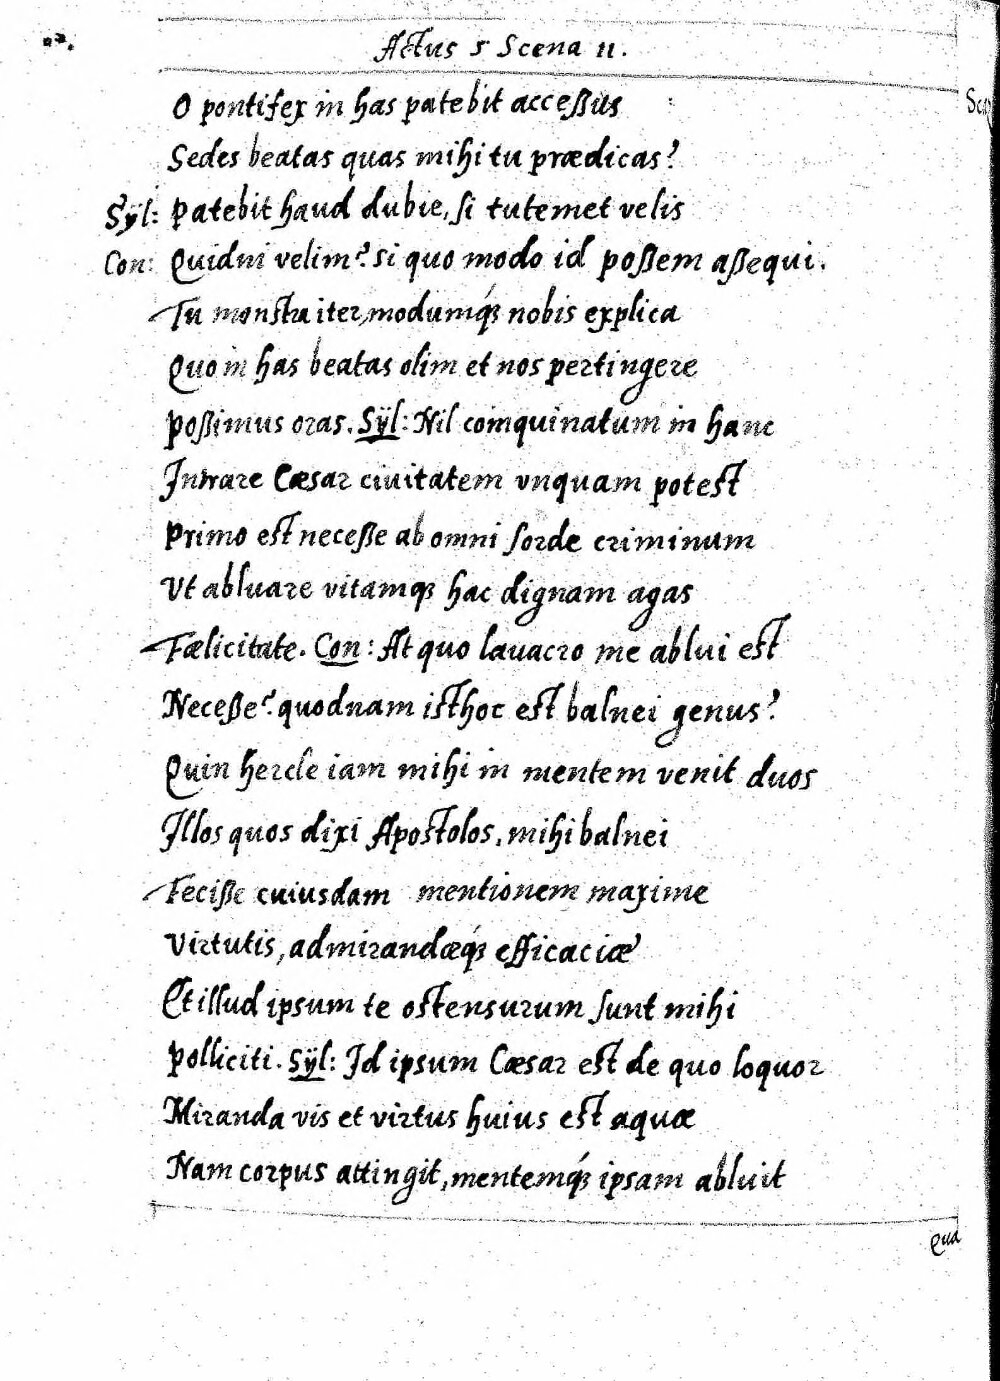 Actus 5 Scena 11.
O pontifex in has patebit accessus
Sedes beatas quas mihi tu prædicas?
Syl: Patebit haud dubie, si tutemet velis
Con: Quidni velim? si quo modo id possem assequi.
Tu monstra iter, modumq́ue nobis explica
Quo in has beatas olim et nos pertingere
Possimus oras. Syl: Nil coinquinatum in hanc
Intrare Cæsar ciuitatem vnquam potest
Primo est necesse ab omni sorde criminum
Vt abluare vitamque hac dignam agas
Fælicitate. Con: At quo lauacro me ablui est
Necesse? quodnam isthoc est balnei genus?
Quin hercle iam mihi in mentem venit duos
Illos quos dixi Apostolos, mihi balnei
Fecisse cuiusdam mentionem maxime
Virtutis, admirandæq́ue efficaciæ
Et illud ipsum te ostensurum sunt mihi
Polliciti. Syl: Id ipsum Cæsar est de quo loquor
Miranda vis et virtus huius est aquæ
Nam corpus attingit, mentemq́ue ipsam abluit
Qua